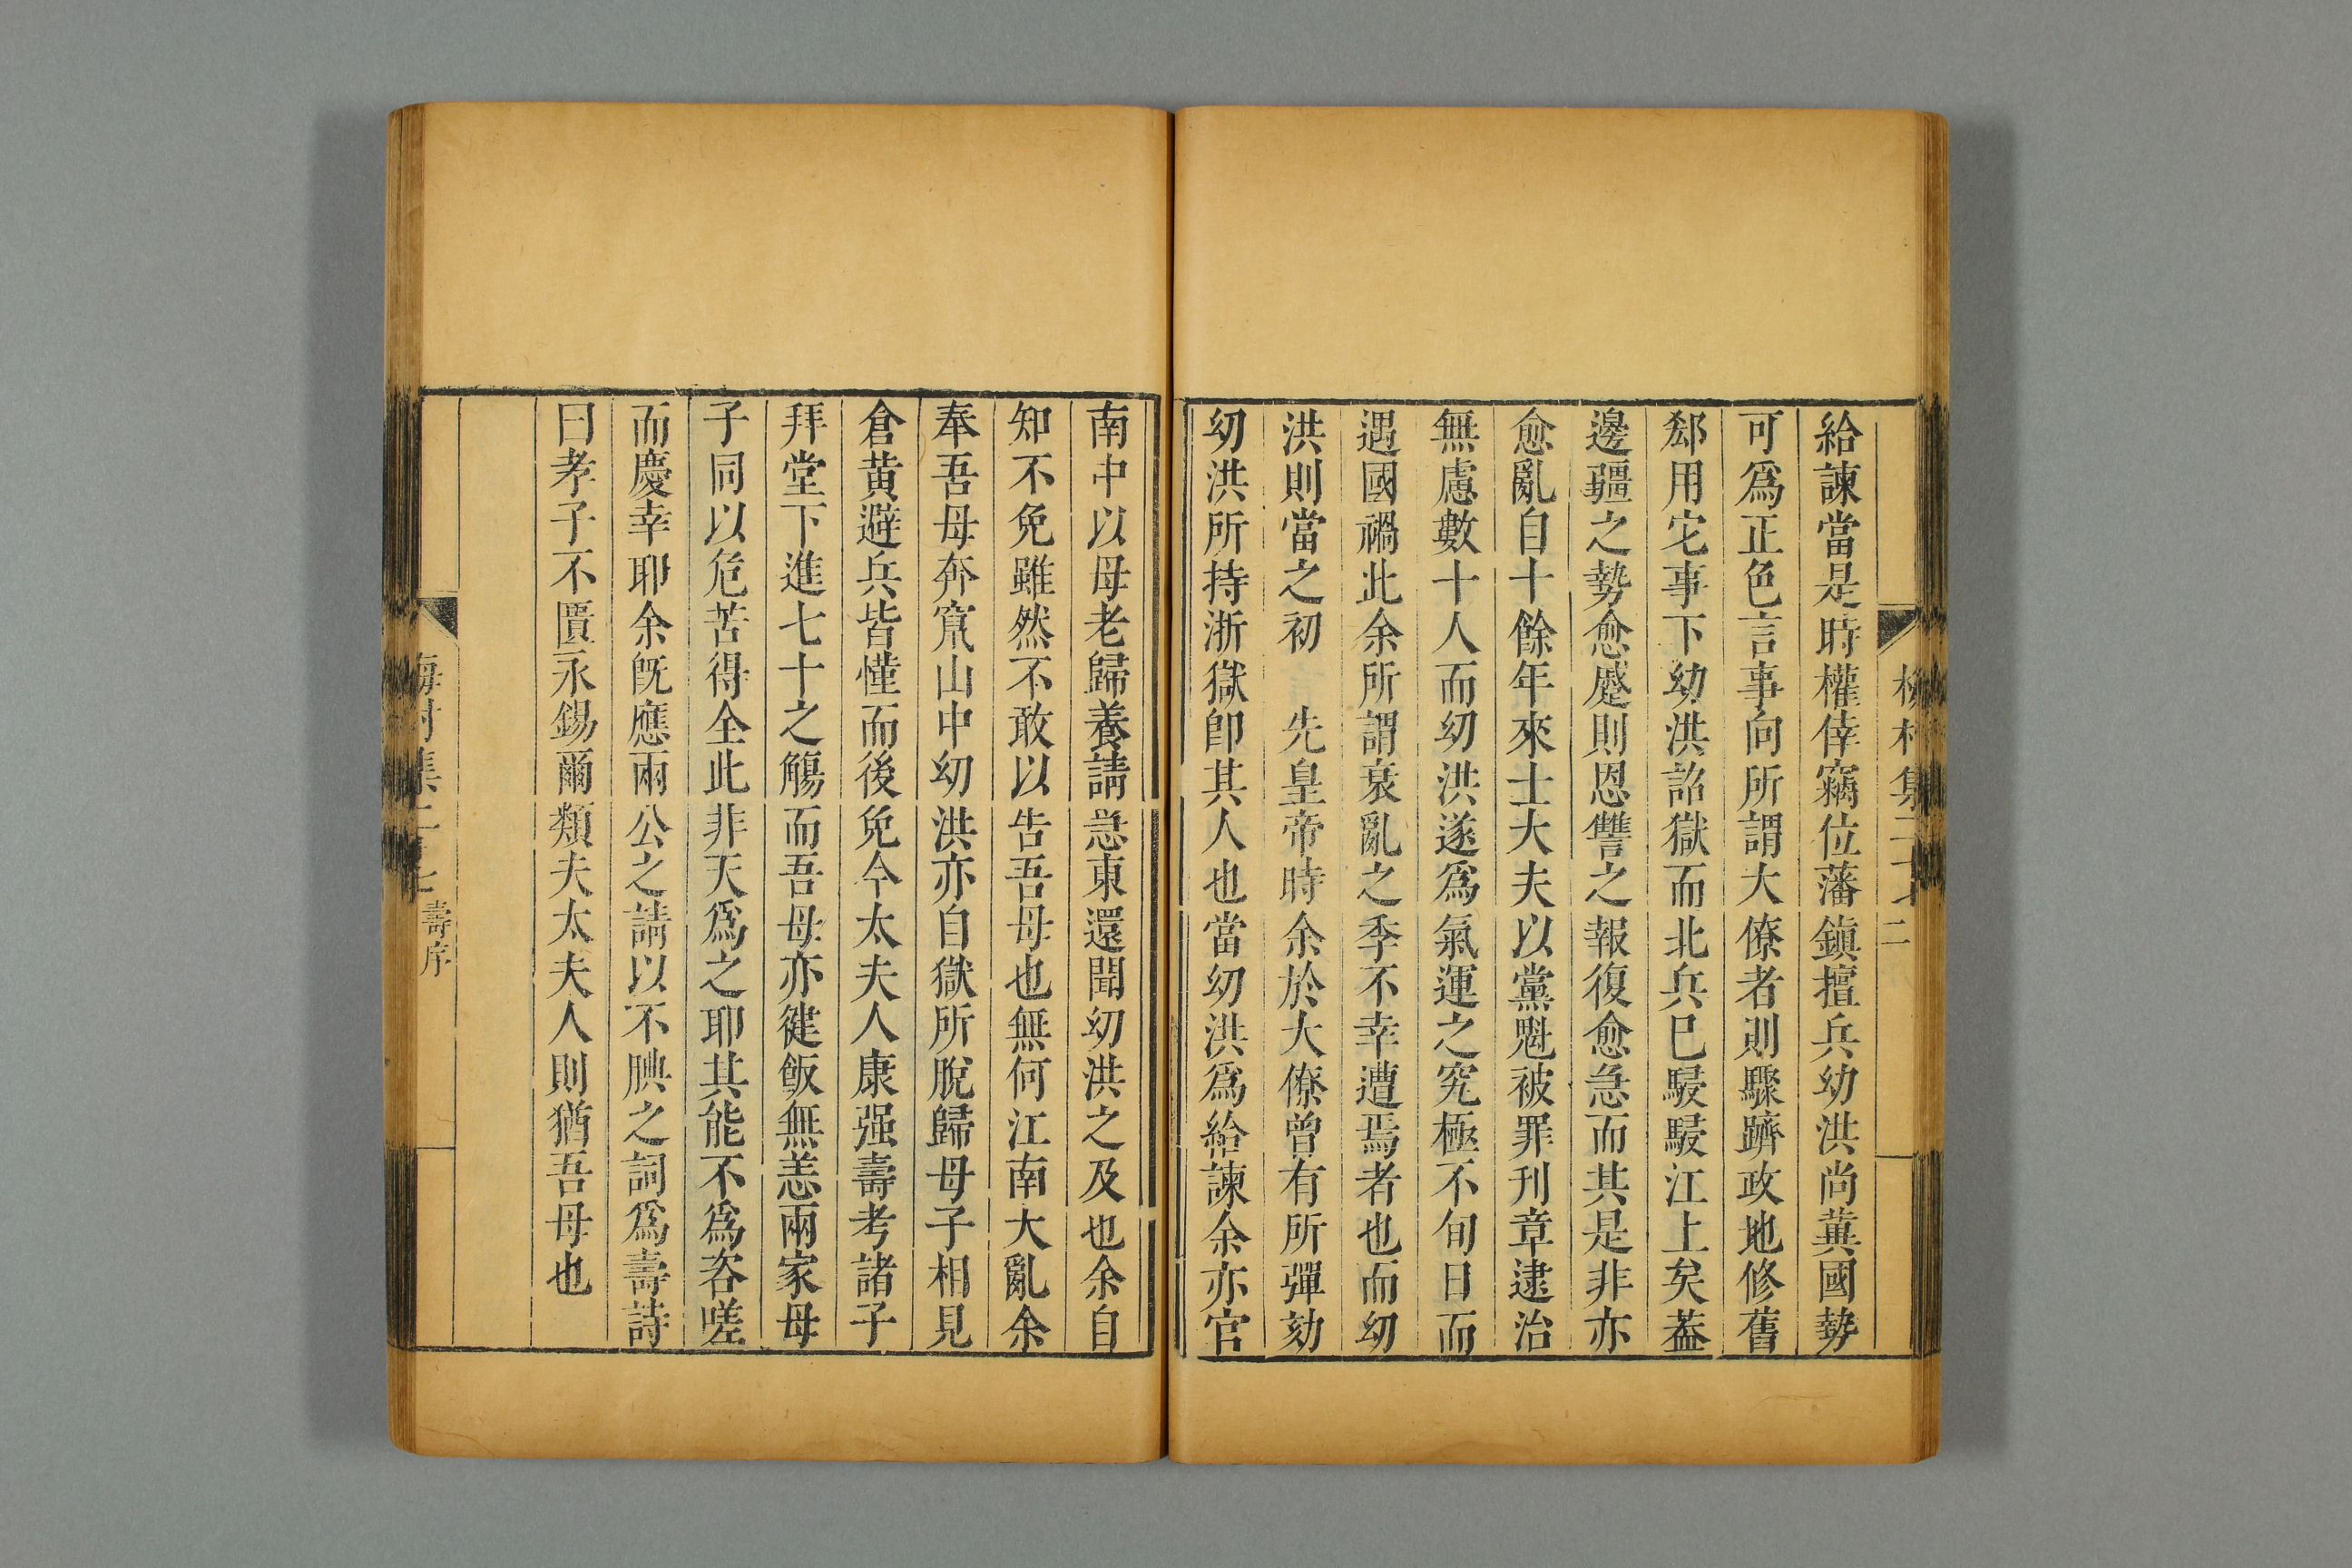 給諫當是時權倖竊位藩鎮擅兵幼洪尚冀國勢
可爲正色言事向所謂大僚者則驟躋政地修舊
郄用它事下幼洪詔獄而北兵已駸駸江上矣葢
邊疆之勢愈蹙則恩讐之報復愈急而其是非亦
愈亂自十餘年來士大夫以黨魁被罪刊章逮治
無慮數十人而幼洪遂爲氣運之究極不旬日而
遇國禍此余所謂衰亂之季不幸遭焉者也而幼
洪則當之初 先皇帝時余於大僚曾有所彈劾
幼洪所持浙獄卽其人也當幼洪爲給諫余亦官
南中以母老歸養請急東還聞幼洪之及也余自
知不免雖然不敢以告吾母也無何江南大亂余
奉吾母奔竄山中幼洪亦自獄所脫歸母子相見
倉黃避兵皆慬而後免今太夫人康强壽考諸子
拜堂下進七十之觴而吾母亦健飯無恙兩家母
子同以危苦得全此非天爲之耶其能不爲咨嗟
而慶幸耶余旣應兩公之請以不腆之詞爲壽詩
曰孝子不匱永錫爾類夫太夫人則猶吾母也
梅村集二十七 壽序
二